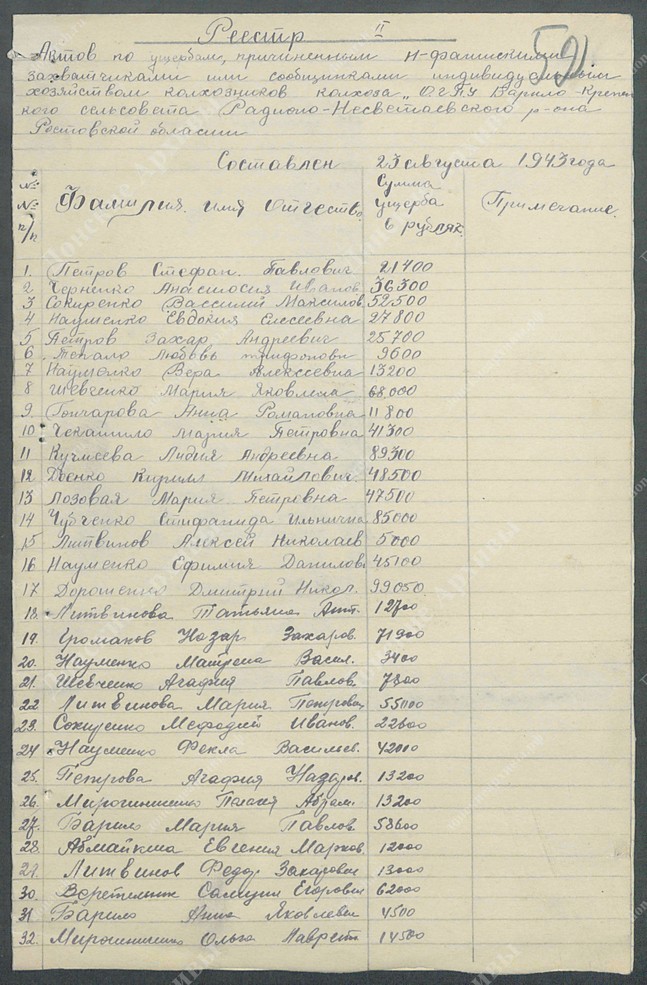 Реестр II
Актов по ущербам, причиненным н-фашискими
захватчиками или сообщинками индивидуальным
хозяйствам колхозников колхоза „ОГПУ Барило-Крепин
кого сельсовета Радионо-Несветаевского р-она
Ростовской области
Составлен 23 августа 1943 года
№ № п/п Фамилия, имя отчество Сумма ущерба в рублях. Примечание.
1. Петров Стефан Павлович 21400
2 Черненко Анастосия Иванов 36300
3 Сокиренко Вассилий Максимов 52500
4 Науменко Евдокия Елесеевна 27800
5 Петров Захар Андреевич 25700
6 Любовь 9600
7 Науменко Вера Алексеевна 13200
8 Шевченко Мария Яковлена 68000
9. Гончарова Анна Романовна 11800
10 Мария Петровна 41300
11 Лидия Андреевна 89300
12 Доенко Кирилл Михайлович 48500
13 Лозовая Мария Петровна 47500
14 Чубченко Стифанида Ильнична 85000
15 Литвинов Алексей Николаев 5000
16 Науменко Ефимия Данилов 45100
17 Дорошенко Дмитрий Никол. 99050
18. Литвинова Татьяна Ант. 12700
19. Громаков Назар Захаров. 71900
20. Науменко Матрена Васил. 3400
21. Шевченко Агафия Павлов 7800
22 Литвинова Мария Петрович 55000
23. Сокиренко Мефодий Иванов. 22600
24 Науменко Фекла Васильев. 42000
25. Петрова Агафия Назаров. 13200
26. Мирошниченко Абрам. 13200
27. Барило Мария Павлов. 58600
28. Евгения Марков 12000
29. Литвинов Федор Захарович 13000
30. Веретельник Егорович 62000
31 Барило Анна Яковлевн 4500
32. Мирошниченко Ольга Лаврент 14500